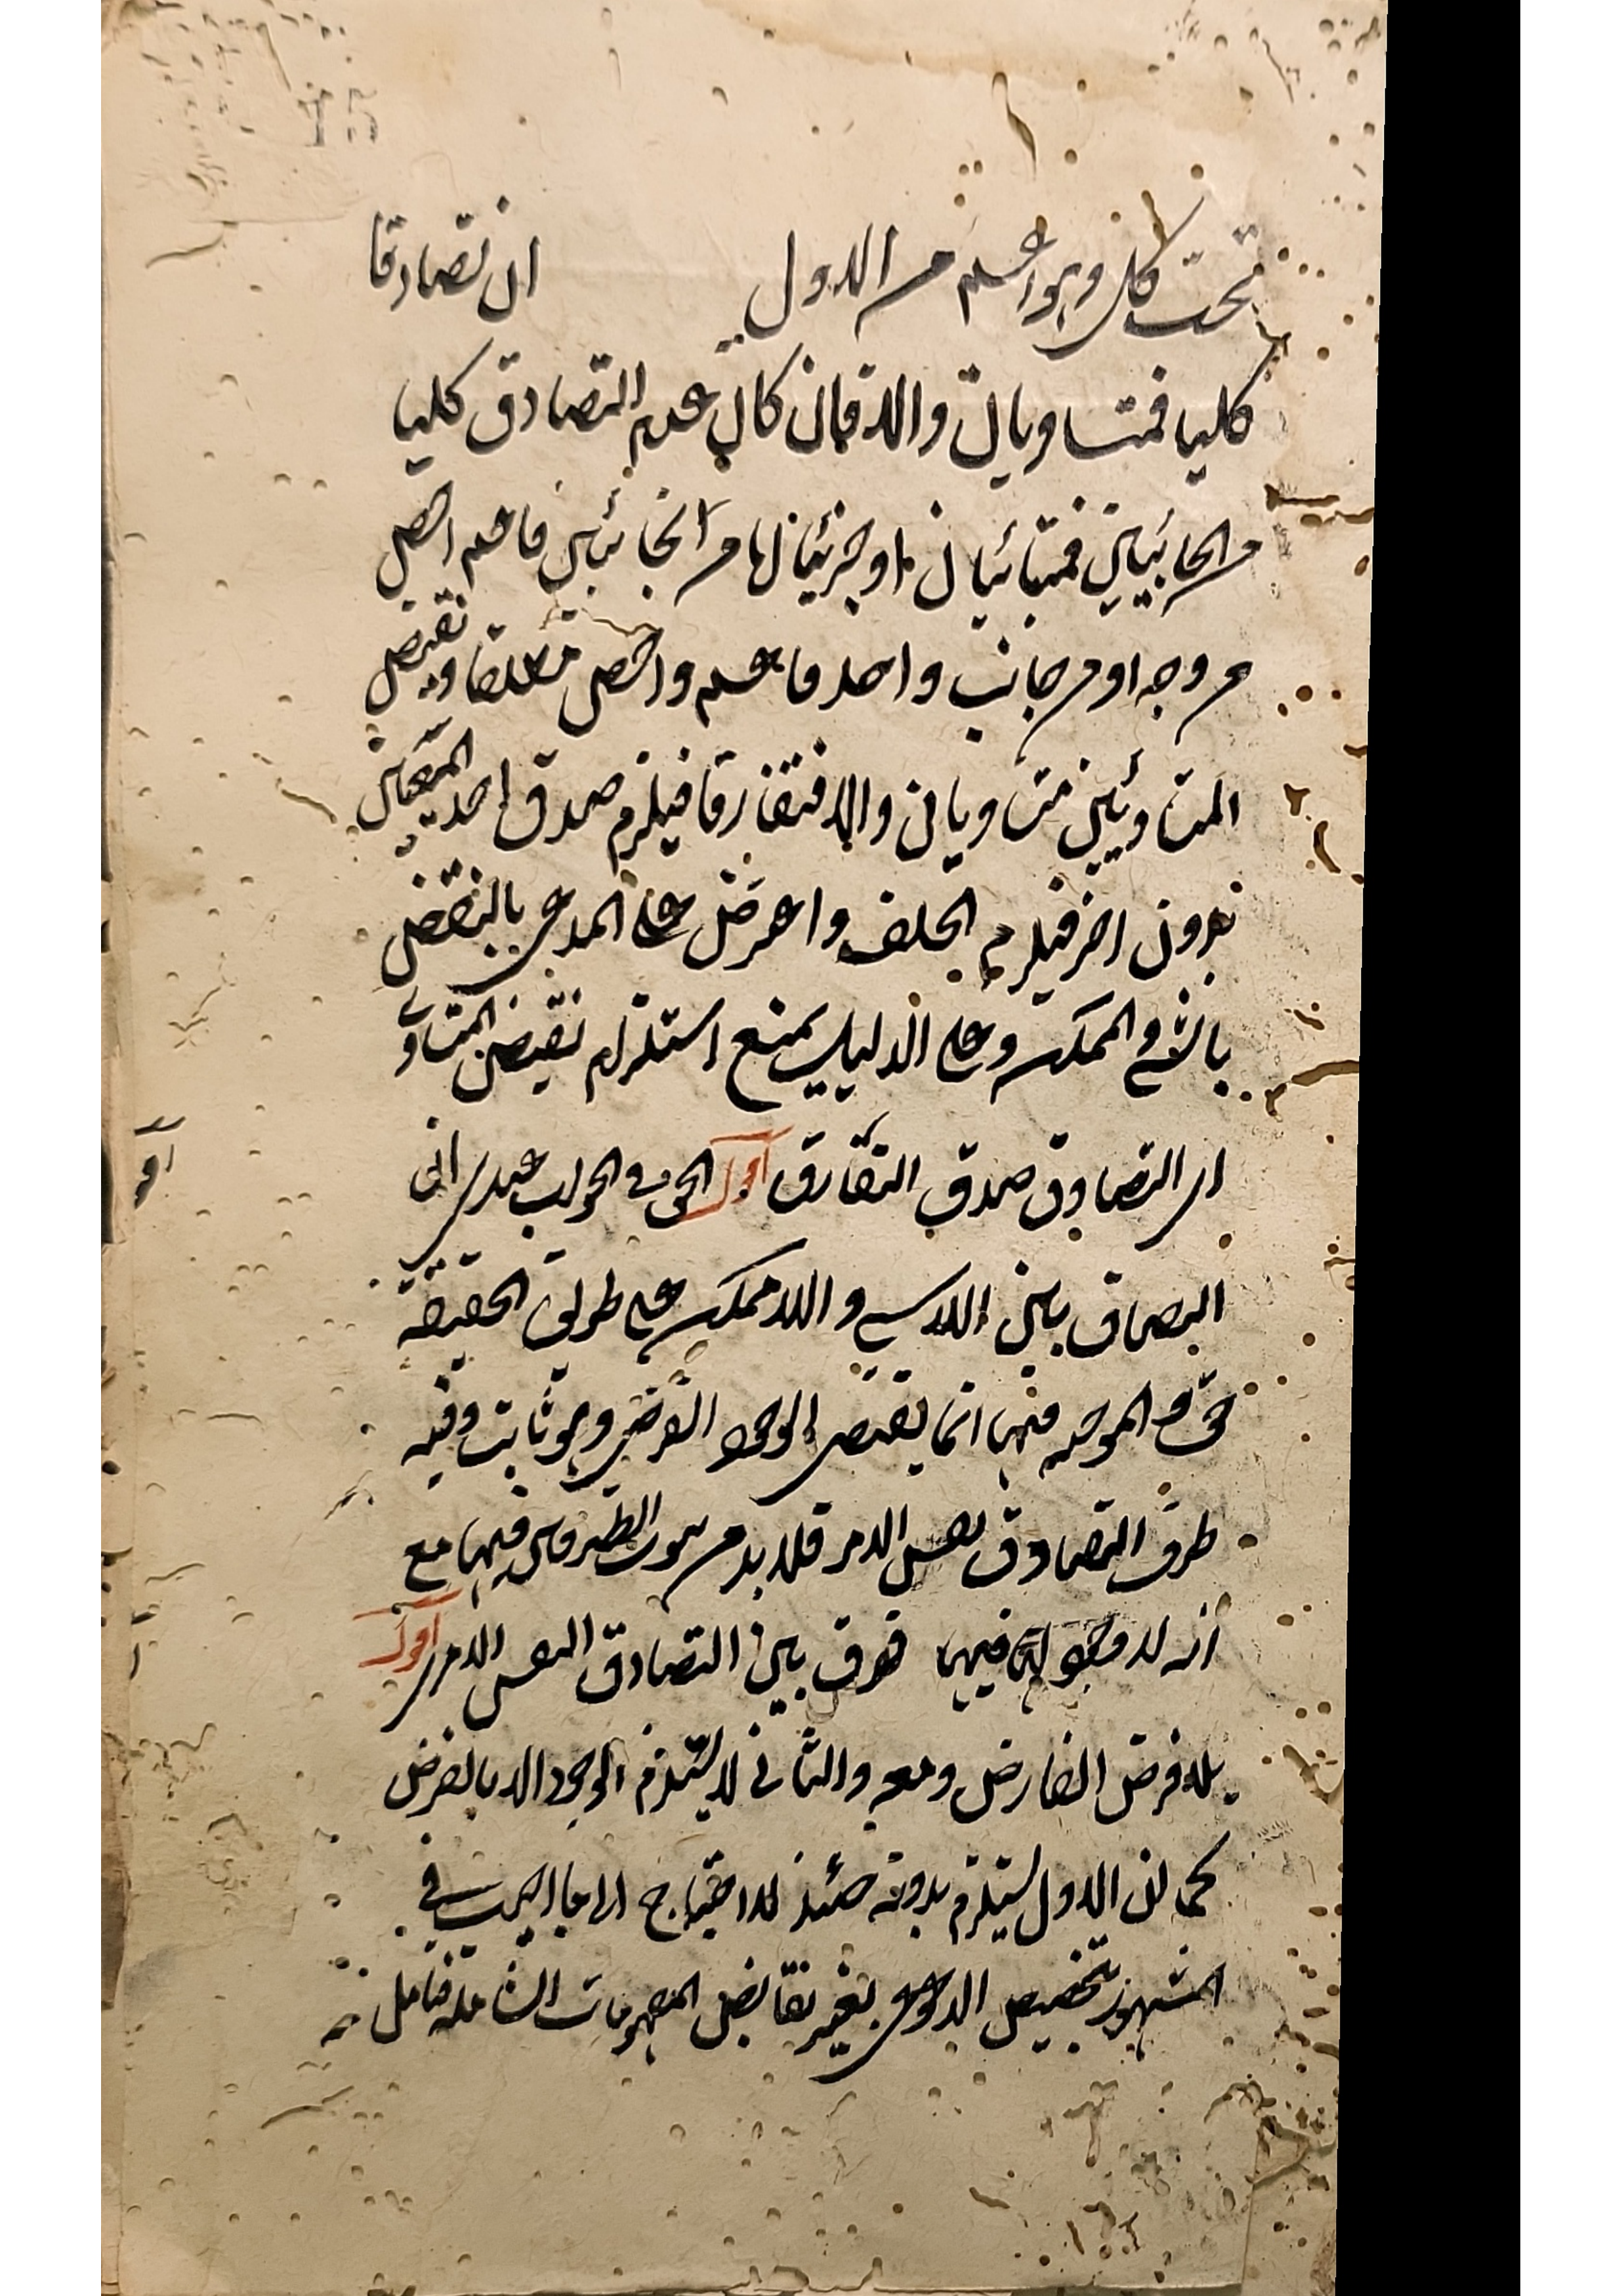 تحت كلى وهو اعم من الاول ان تصادقا
كليا فمتساويان والا فان كان عدم التصادق كليا
من الجانبين فمتبائنان او جزئيا فاما من الجانبين فاعم اخص
من وجه او من جانب واحد فاعم واخص مطلقا ونقيض
المتساويين متساويان والا فتفارقا فيلزم صدق احد المتساويين
بدون اخر فيلزم الخلف واعترض على المدعى بالنقض
بالشئ والممكن وعلى الدليل بمنع استلزام نقيض المتساوى
اى التصادق صدق التفارق اقول الحق فى الجواب عندى ان
التصادق بين اللاشى واللاممكن على طريق الحقيقة
حق والموجبة منها انما يقتضى الوجود الفرضى وهو ثابت وفيه
ظرف التصادق نفس الامر فلا بد من ثبوت الطرفين فيها مع
انه لا وجود لهما فيها فرق بين التصادق النفس الامرى اقول
بلا فرض الفارض ومعه والثانى لا يستلزم الوجود الا بالفرض
كما ان الاول يستلزم بدونه حينئذ لا احتياج الى ما اجيب فى
المشهور بتخصيص الدعوى بغير نقائض المفهومات الشاملة فتامل